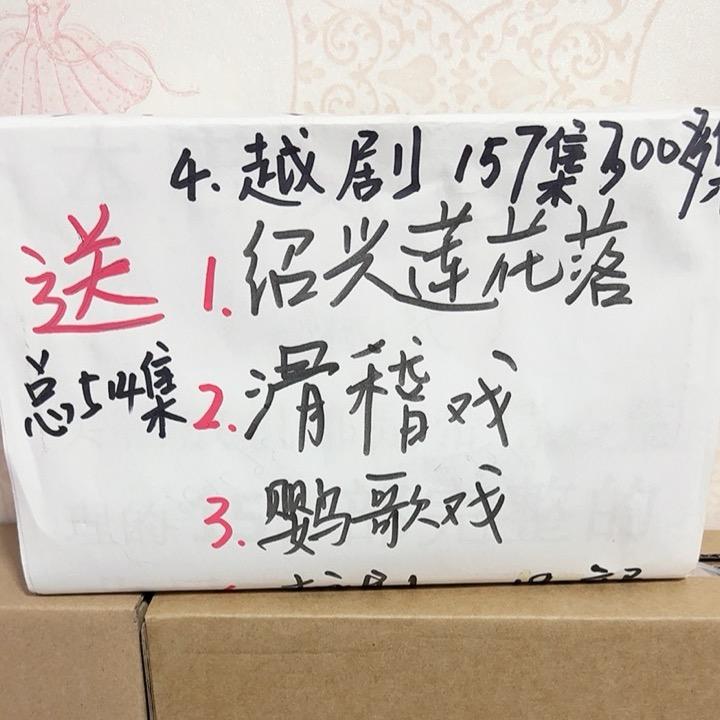 4. 越剧 157集300多集
送 1. 绍兴莲花落
总514集 2. 滑稽戏
3. 鹦歌戏